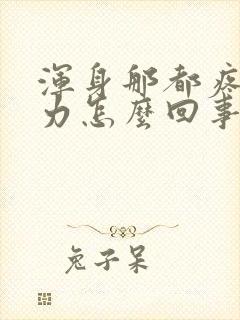 渾身那都疼
力怎麼回事
兔子呆